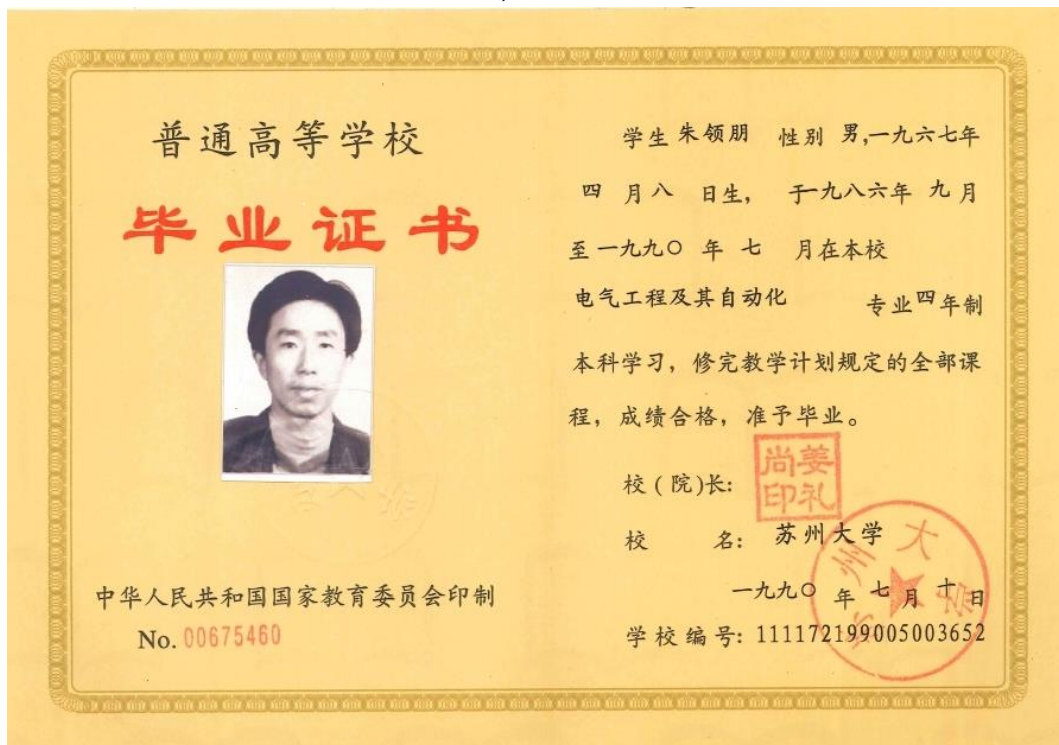 普通高等学校
毕业证书
中华人民共和国国家教育委员会印制
No. 00675460
学生 朱领朋 性别 男,一九六七年
四 月 八 日生, 于一九八六年 九 月
至一九九〇 年 七 月在本校
电气工程及其自动化 专业 四 年制
本科学习, 修完教学计划规定的全部课
程, 成绩合格, 准予毕业。
校(院)长: 姜礼尚印
校 名: 苏州大学
一九九〇 年 七 月 十 日
学校编号: 111172199005003652
苏州大学